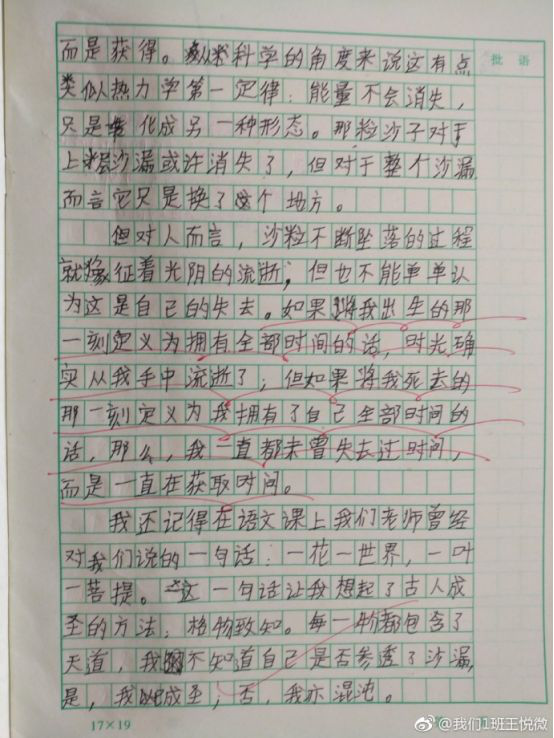 而是获得。从科学的角度来说这有点
类似热力学第一定律：能量不会消失，
只是转化成另一种形态。那粒沙子对于
上层沙漏或许消失了，但对于整个沙漏
而言它只是换了个地方。
但对人而言，沙粒不断坠落的过程
就像征着光阴的流逝，但也不能单单认
为这是自己的失去。如果将我出生的那
一刻定义为拥有全部时间的话，时光确
实从我手中流逝了，但如果将我死去的
那一刻定义为我拥有了自己全部时间的
话，那么，我一直都未曾失去过时间，
而是一直在获取时间。
我还记得在语文课上我们老师曾经
对我们说的一句话：一花一世界，一叶
一菩提。这一句话让我想起了古人成
圣的方法：格物致知。每一物都包含了
天道，我不知道自己是否参透了沙漏，
是，我成圣；否，我亦混沌。
批语
17×19
@我们1班王悦微